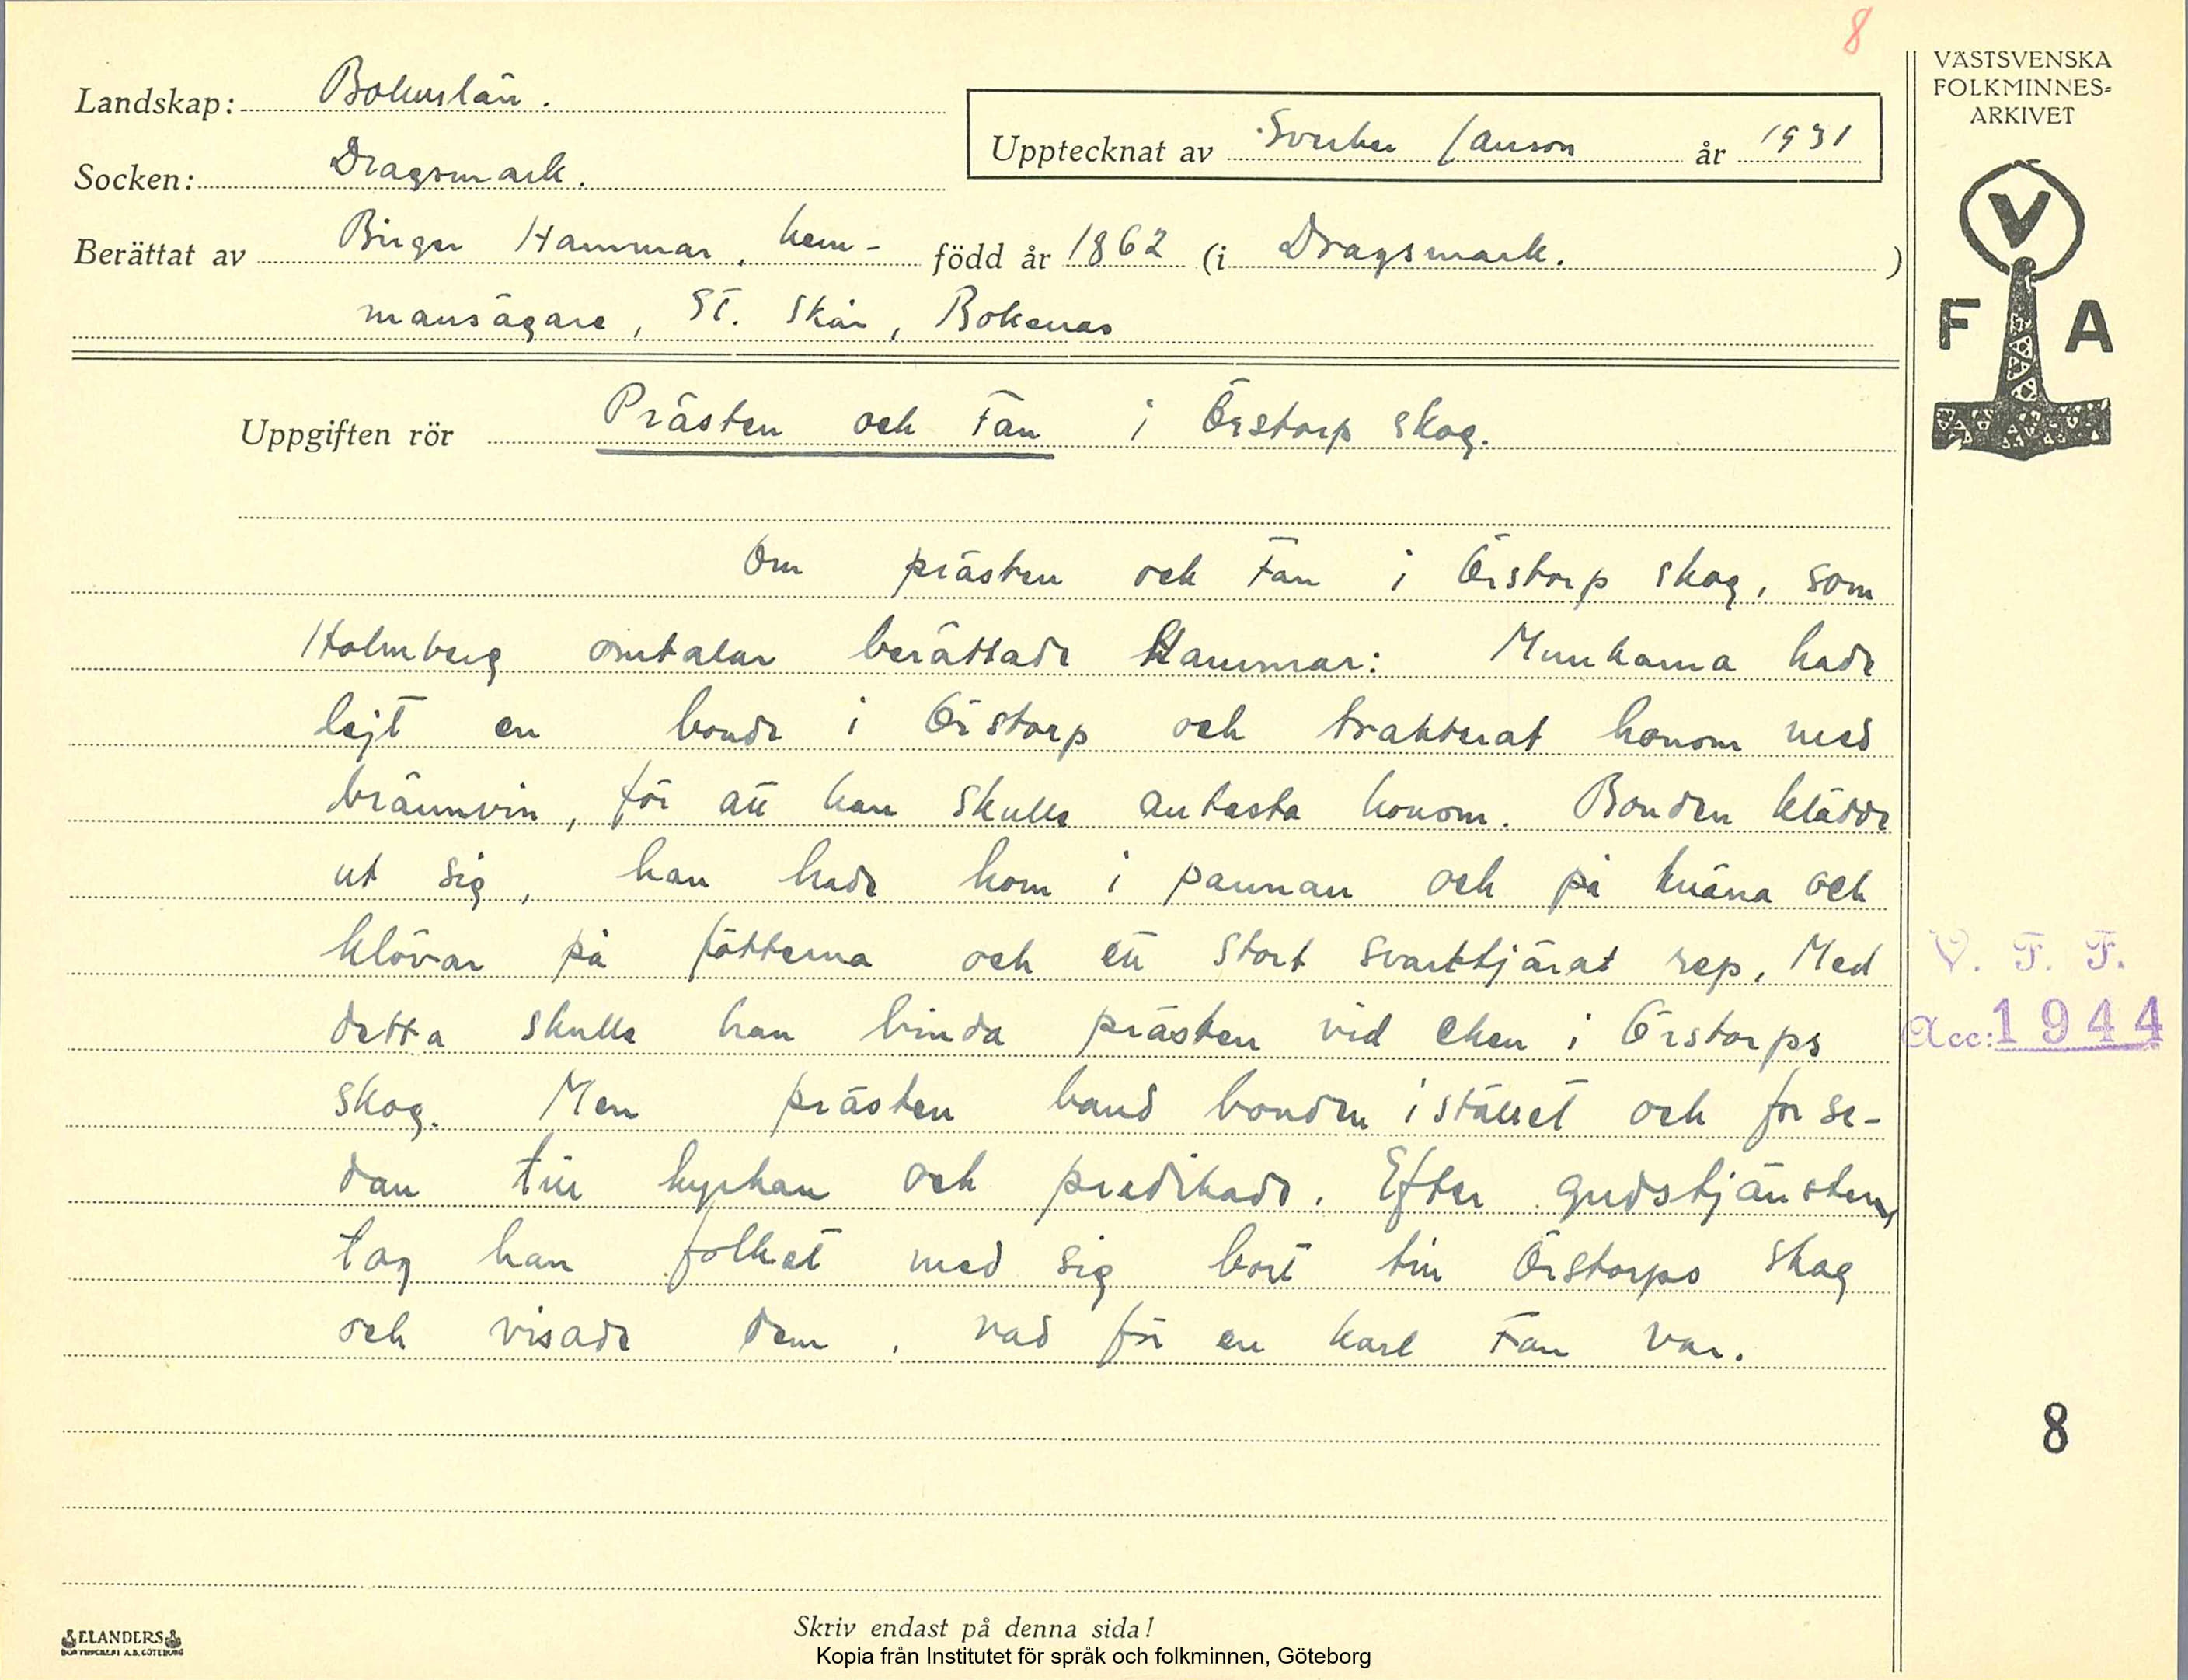 8
VÄSTSVENSKA
FOLKMINNES=
ARKIVET
Landskap: Bohuslän.
Upptecknat av Sverker Janson år 1931
Socken: Dragsmark.
Berättat av Birger Hammar, hem- född år 1862 (i Dragsmark. )
mansägare, St. Skår, Bokenäs
V
F A
Uppgiften rör Prästen och Fan i Örstorp skog.
Om prästen och Fan i Örstorp skog, som
Holmberg omtalar berättade Hammar: Munkarna hade
lejt en bonde i Örstorp och trakterat honom med
brännvin, för att han skulle antasta honom. Bonden klädde
ut sig, han hade horn i pannan och på knäna och
klövar på fötterna och ett stort svarttjärat rep. Med
detta skulle han binda prästen vid eken i Örstorps
skog. Men prästen band bonden istället och for se-
dan till kyrkan och predikade. Efter gudstjänsten,
tog han folket med sig bort till Örstorps skog
och visade dem, vad för en karl Fan var.
V. F. F.
Acc: 1944
8
ELANDERS
BOKTRYCKERI A.B. GÖTEBORG
Skriv endast på denna sida!
Kopia från Institutet för språk och folkminnen, Göteborg